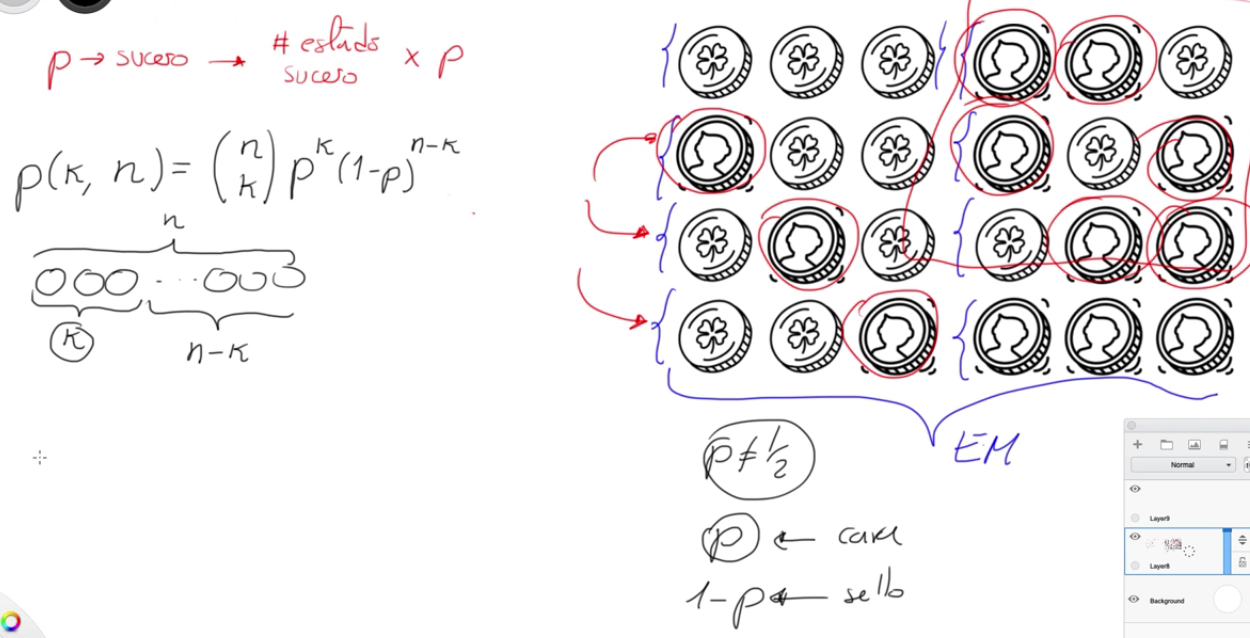 p → suceso → # estado suceso × p
p(k, n) = (n k) p^k (1-p)^{n-k}
n
000 · · · 000
k
n-k
EM
p ≠ 1/2
p ← cara
1-p ← sello
Normal
Layer9
Layer8
Background